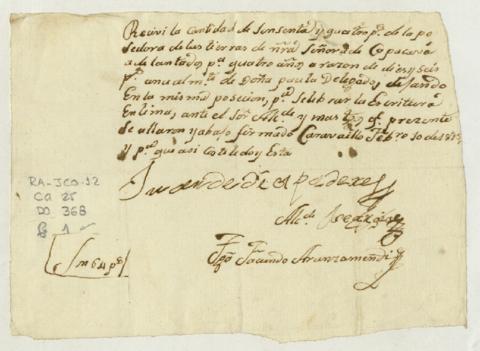 Recivi la cantidad de sensenta y quatro ps. de la po
sedora de las tierras de nra Señora de Copacava
adelantados pr. quatro años a razon de dies y seis
ps. anual ms. de Doña paula Delgado,
En la misma posecion, pa. selebrar la Escritura
En lima, ante el Sor Alcde. y mas tgos. qe. prezente
se allaron y abajo firmado Caravaillo Febro 10 de
y pa. que asi coste le doy Esta
Juan de Dios pederes
Alcde.
Tgo Facundo Aranzamendi
Son 64 ps
RA-JCO.12
Ca 25
DO. 368
f 1